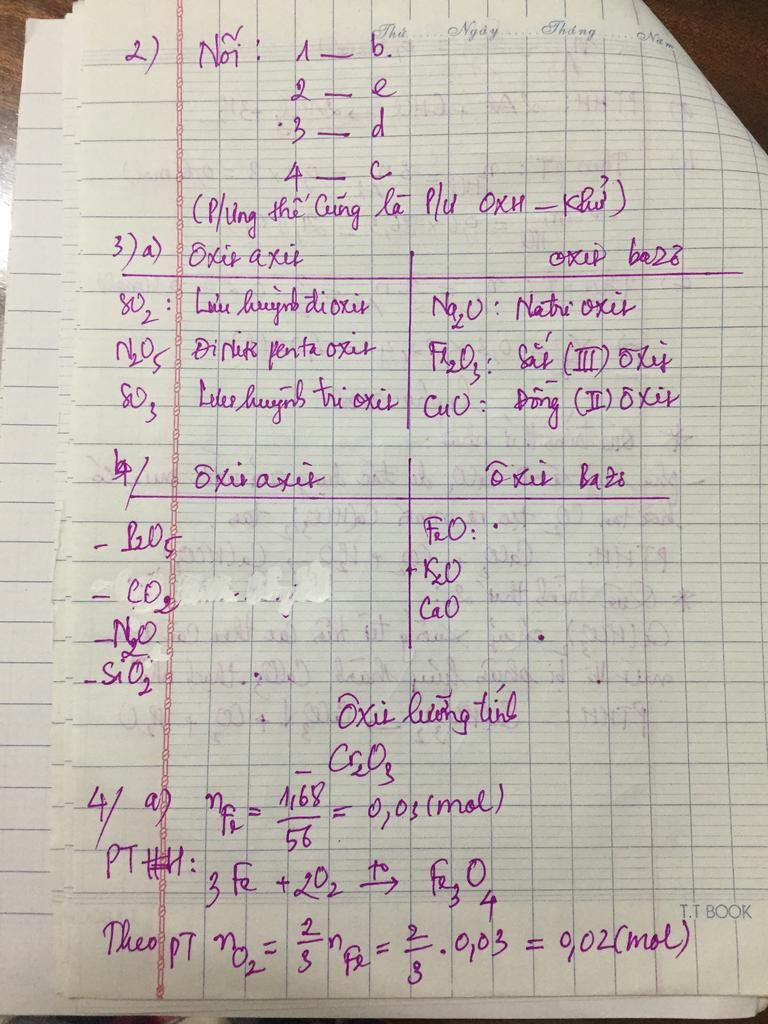 Thứ...... Ngày...... Tháng...... Năm
2) Nối: 1 — b.
2 — e
3 — d
4 — c
(P/ứng thế cũng là P/Ư OXH – Khử)
3) a) Oxit axit | oxit bazơ
SO₂: Lưu huỳnh đioxit | Na₂O: Natri oxit
N₂O₅ Đinitơ pentaoxit | Fe₂O₃: Sắt (III) Oxit
SO₃ Lưu huỳnh tri oxit | CuO: Đồng (II) Oxit
b/ Oxit axit | Oxit Bazơ
- P₂O₅ | FeO:
- CO₂ | K₂O
- N₂O | CaO
- SiO₂
Oxit lưỡng tính
- Cr₂O₃
4/ a) n_Fe = 1,68/56 = 0,03 (mol)
PTHH: 3Fe + 2O₂ →(t°) Fe₃O₄
T.T BOOK
Theo PT n_O₂ = 2/3 n_Fe = 2/3 . 0,03 = 0,02 (mol)